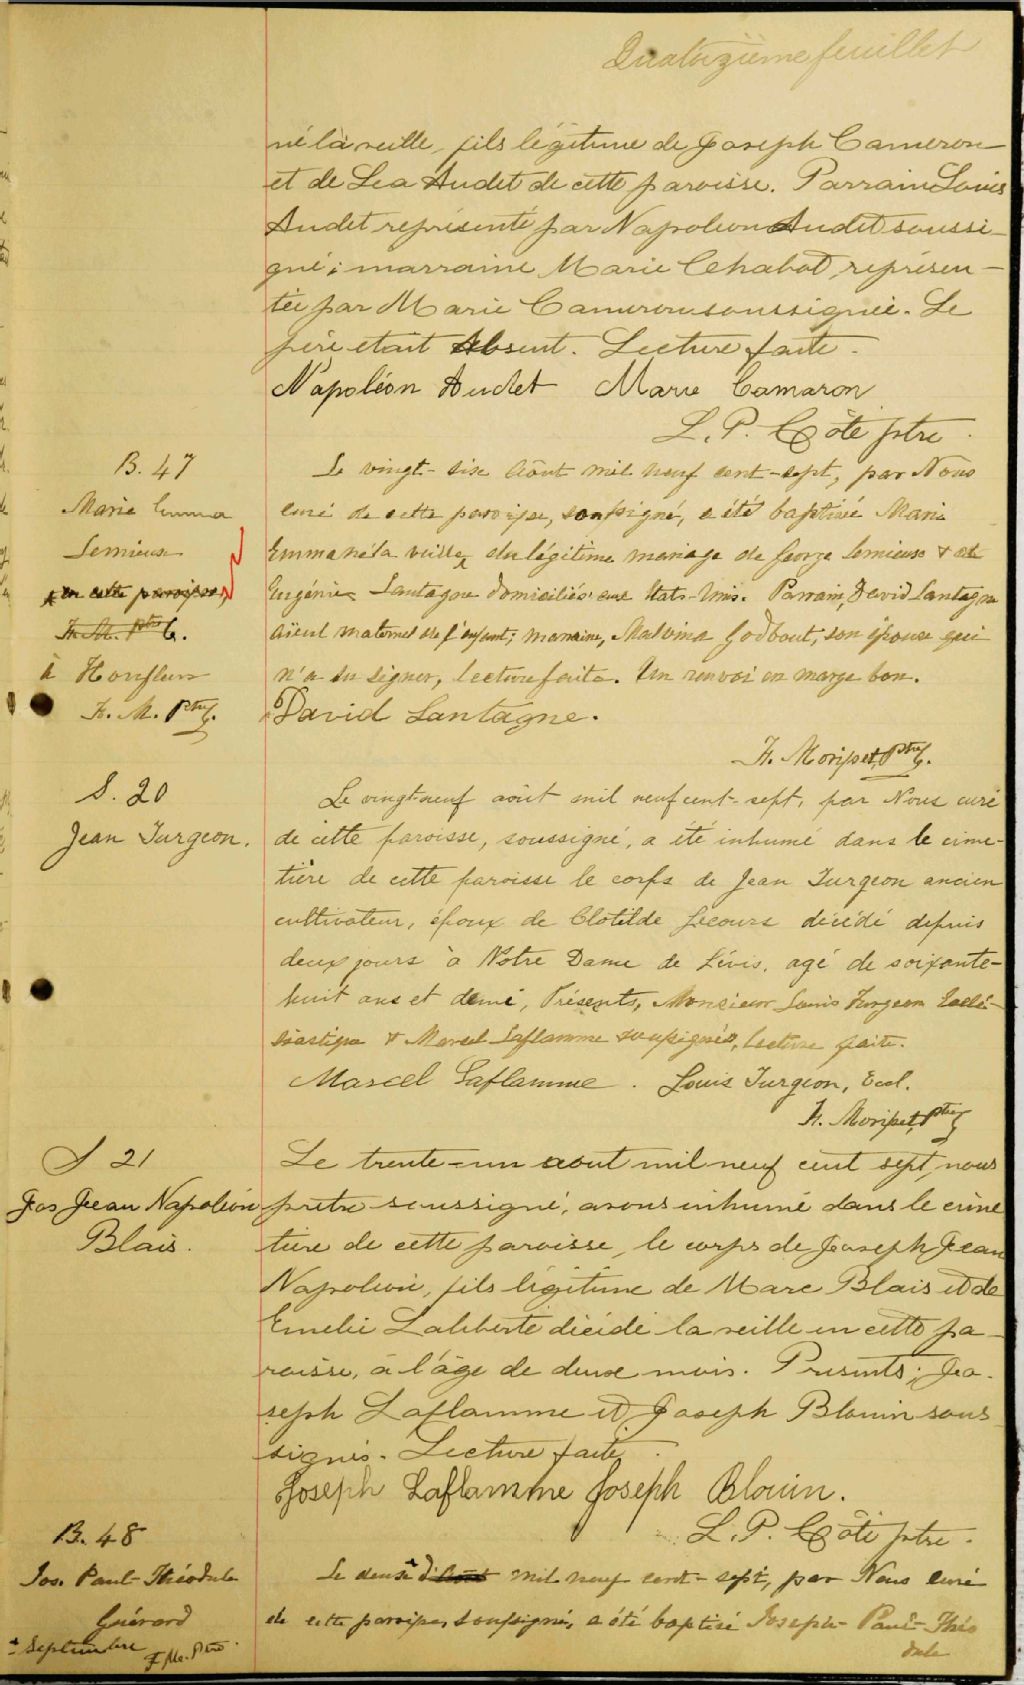 Quatorzième feuillet
né la veille, fils légitime de Joseph Cameron
et de Lea Audet de cette paroisse. Parrain Louis
Audet représenté par Napoleon Audet soussi-
gné; marraine Marie Chabot, représen-
tée par Marie Cameron soussignée. Le
père etait absent. Lecture faite.
Napoléon Audet Marie Camaron
L. P. Côté ptre.
B. 47
Marie Emma
Lemieux
en cette paroisse,
F. M. Ptre C.
à Honfleur
F. M. Ptre
Le vingt-six Août mil neuf cent-sept, par Nous
curé de cette paroisse, soussigné, a été baptisée Marie
Emma née la veille, du légitime mariage de George Lemieux & de
Eugénie Lantagne domiciliés aux Etats-Unis. Parrain, David Lantagne
aïeul maternel de l'enfant; marraine, Malvina Godbout, son épouse qui
n'a su signer, lecture faite. Un renvoi en marge bon.
David Lantagne.
F. Morisset, Ptre
S. 20
Jean Turgeon.
Le vingt neuf août mil neuf cent-sept, par Nous curé
de cette paroisse, soussigné, a été inhumé dans le cime-
tière de cette paroisse le corps de Jean Turgeon ancien
cultivateur, époux de Clotilde Lecours décédé depuis
deux jours à Notre Dame de Lévis, agé de soixante-
huit ans et demi, Présents, Monsieur Louis Turgeon Ecclé-
siastique & Marcel Laflamme soussignés, lecture faite.
Marcel Laflamme. Louis Turgeon, Eccl.
F. Morisset, Ptre
S 21
Jos Jean Napoléon
Blais.
Le trente-un aout mil neuf cent sept, nous
prêtre soussigné, avons inhumé dans le cime
tière de cette paroisse, le corps de Joseph Jean
Napoleon, fils légitime de Marc Blais et de
Emelie Laliberté décédé la veille en cette pa-
roisse, à l'âge de deux mois. Presents; Jo-
seph Laflamme et Joseph Blouin sous
signés. Lecture faite.
Joseph Laflamme Joseph Blouin.
L. P. Côté ptre.
B. 48
Jos. Paul-Théodule
Guérard
+ Septembre F. Mo. Ptre.
Le deux + d'Août mil neuf cent-sept, par Nous curé
de cette paroisse, soussigné, a été baptisé Joseph-Paul-Théo
dule